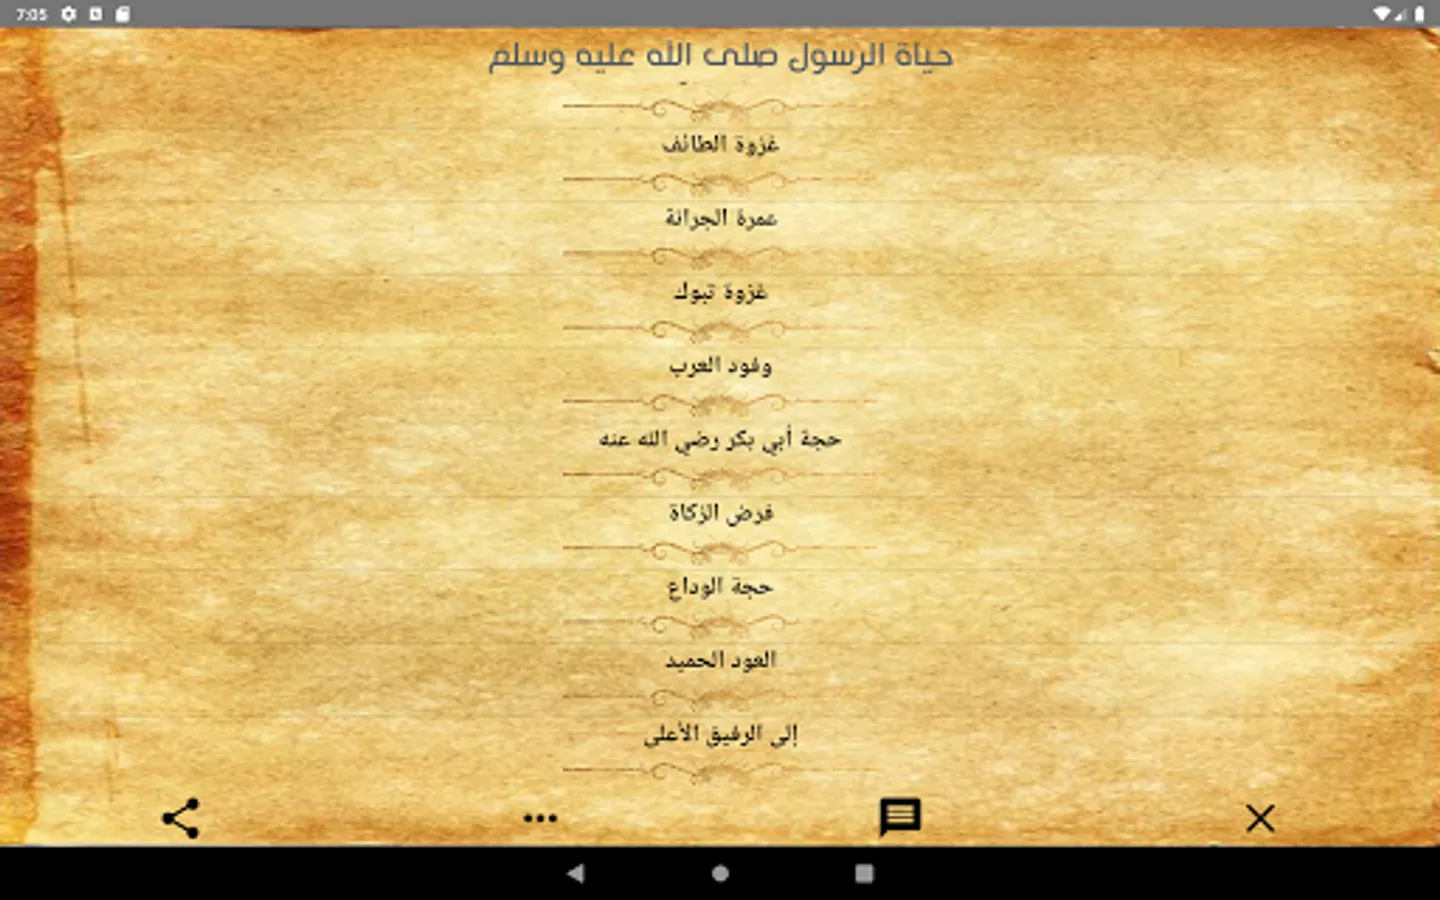 7:05
حياة الرسول صلى الله عليه وسلم
غزوة الطائف
عمرة الجرانة
غزوة تبوك
وفود العرب
حجة أبي بكر رضي الله عنه
فرض الزكاة
حجة الوداع
العود الحميد
إلى الرفيق الأعلى